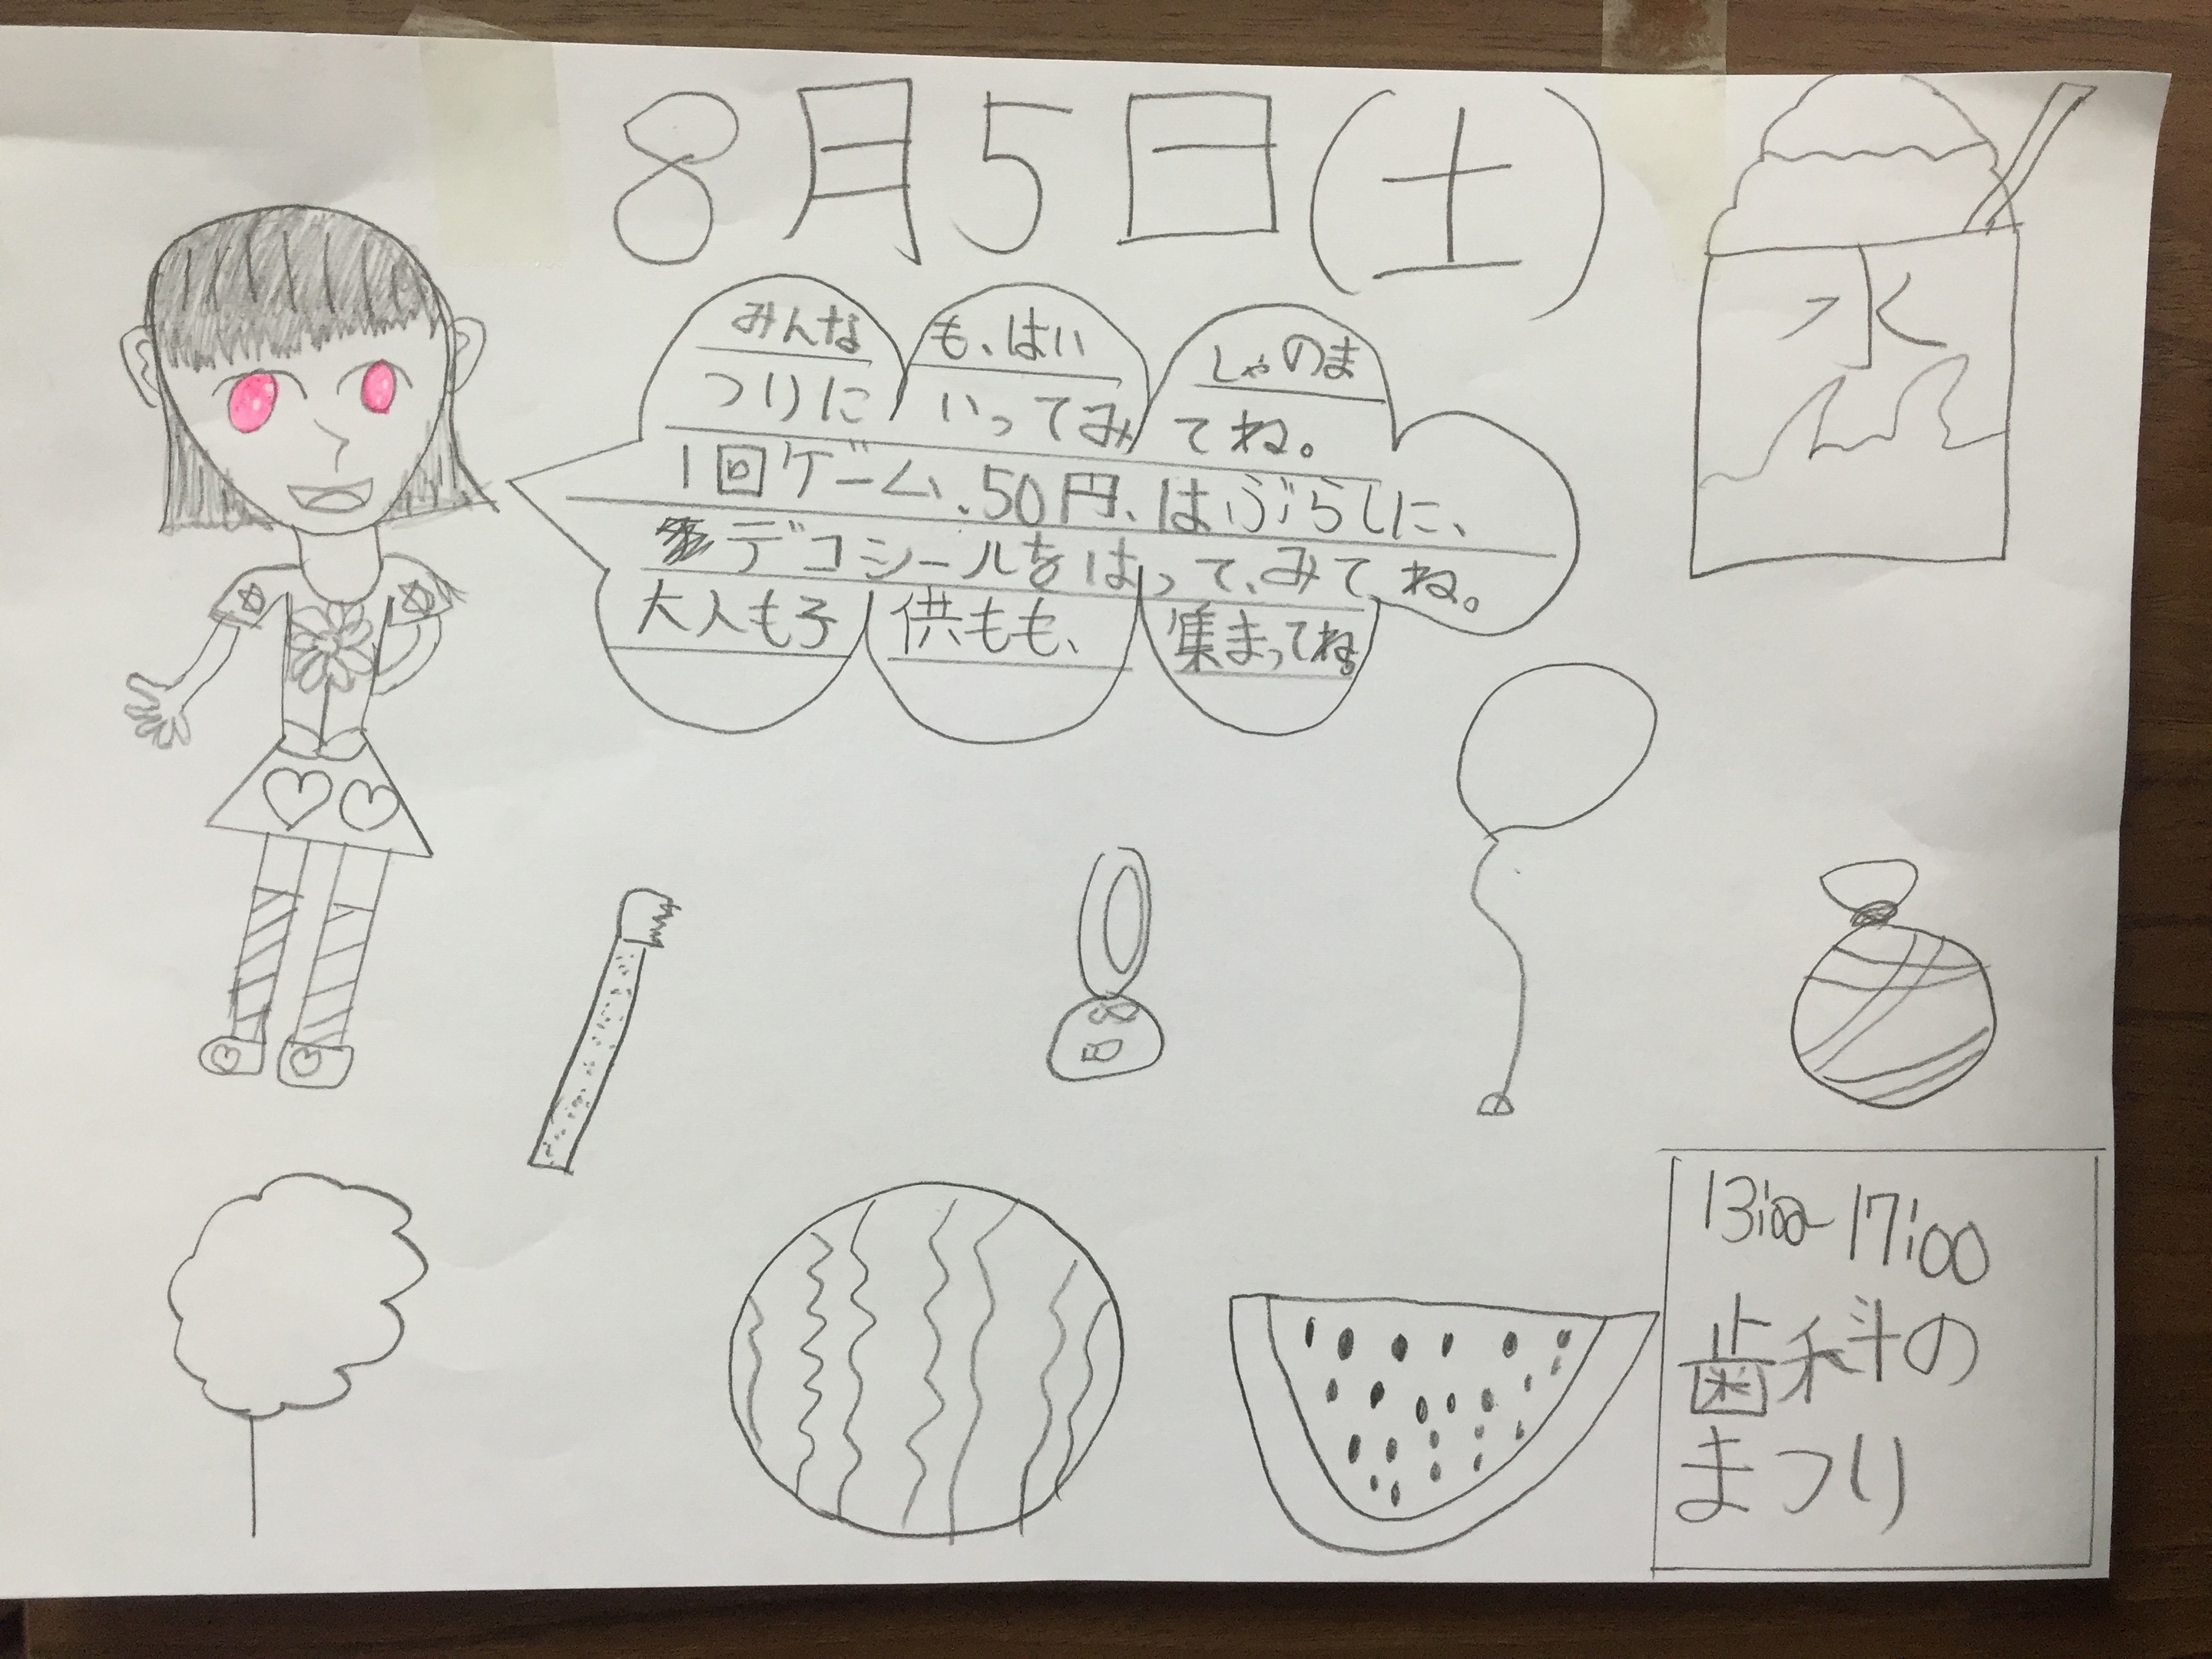 8月5日(土)
みんなも、はいしゃのま
つりにいってみてね。
1回ゲーム、50円、はぶらしに、
デコシールをはって、みてね。
大人も子供もも、集まってね。
水
13:00~17:00
歯科の
まつり